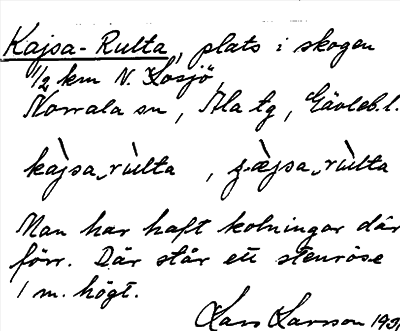 Kajsa-Rulta, plats i skogen
1/2 km N. Losjö,
Norrala sn, Ala tg, Gävleb. l.
kàjsa‿rùlta , ʒæ̀jsa‿rùlta
Man har haft kolningar där
förr. Där står ett stenröse
1 m. högt.
Lars Larsson 193